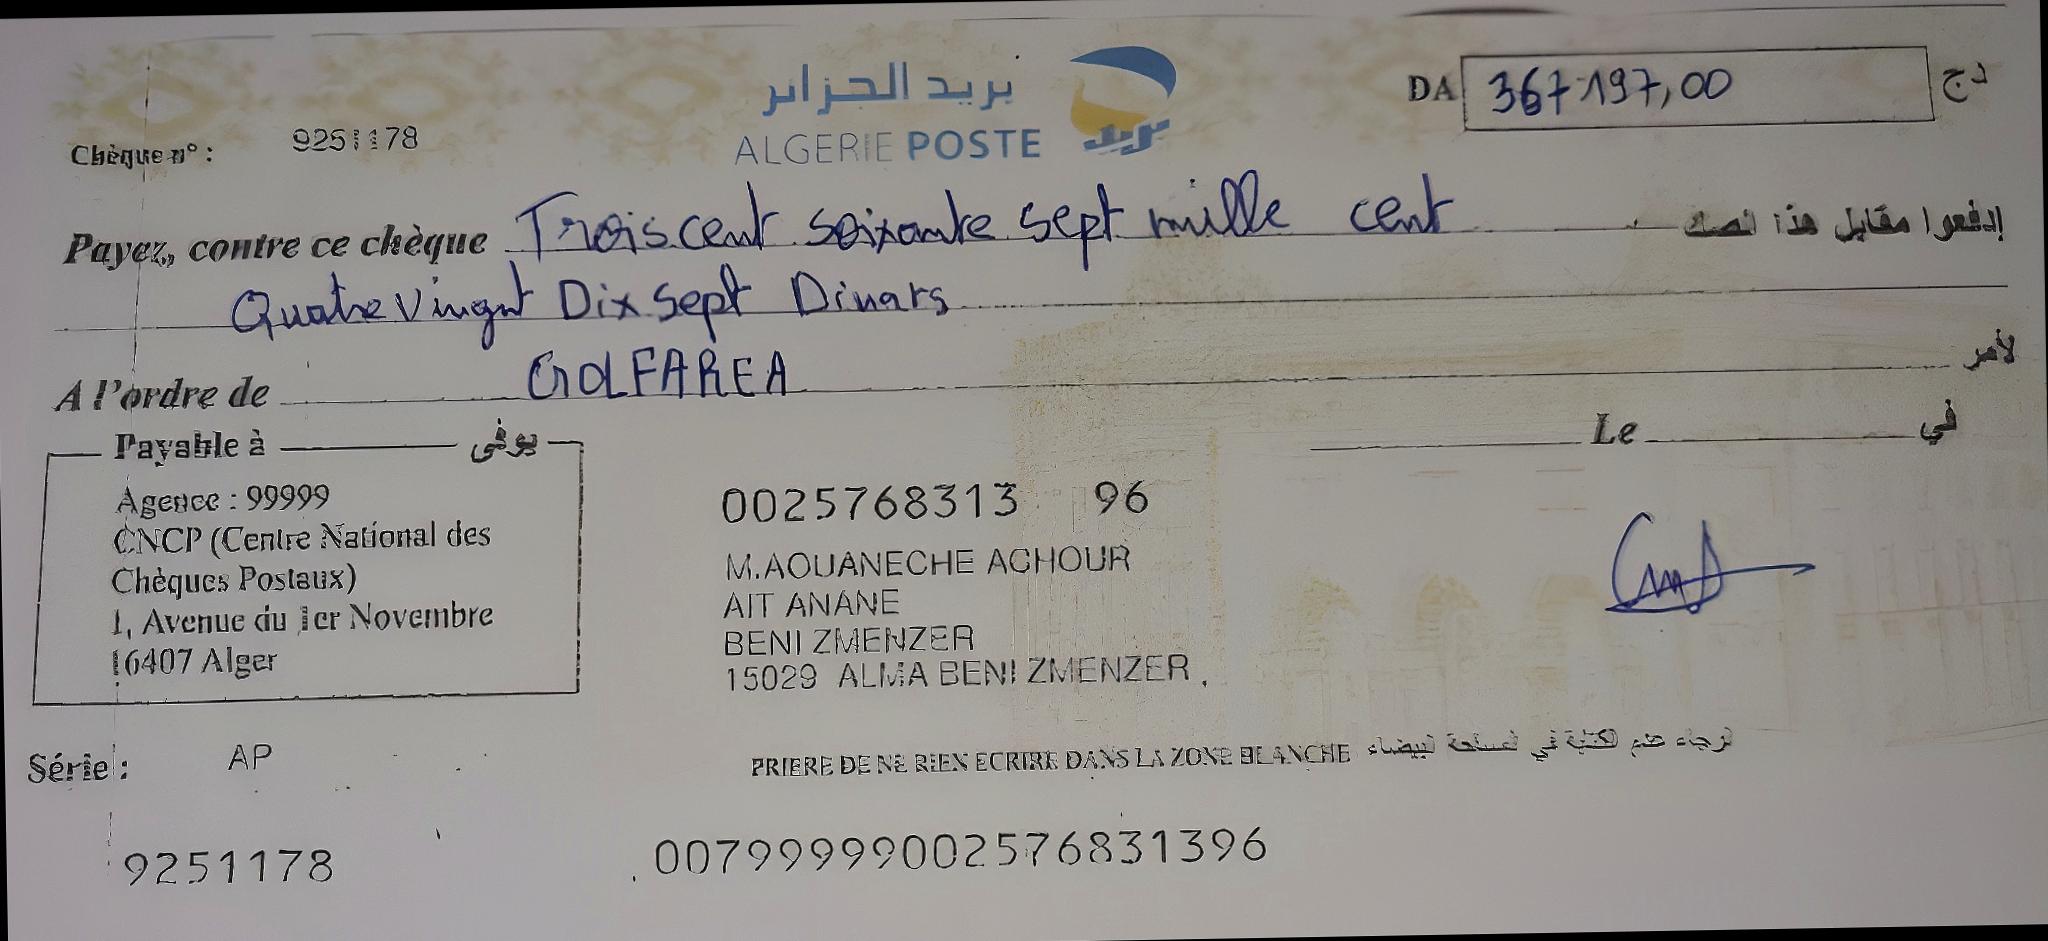 بريد الجزائر
ALGERIE POSTE
بريد
DA 367197,00 دج
Chèque n° : 9251178
Payez, contre ce chèque Trois cent soixante sept mille cent إدفعوا مقابل هذا الصك
Quatre Vingt Dix sept Dinars
A l'ordre de GOLFAREA لأمر
Payable à يوفى
Le في
Agence : 99999
CNCP (Centre National des
Chèques Postaux)
1, Avenue du 1er Novembre
16407 Alger
0025768313 96
M.AOUANECHE ACHOUR
AIT ANANE
BENI ZMENZER
15029 ALMA BENI ZMENZER
Série : AP
PRIERE DE NE RIEN ECRIRE DANS LA ZONE BLANCHE الرجاء عدم الكتابة في المساحة البيضاء
9251178
00799999002576831396